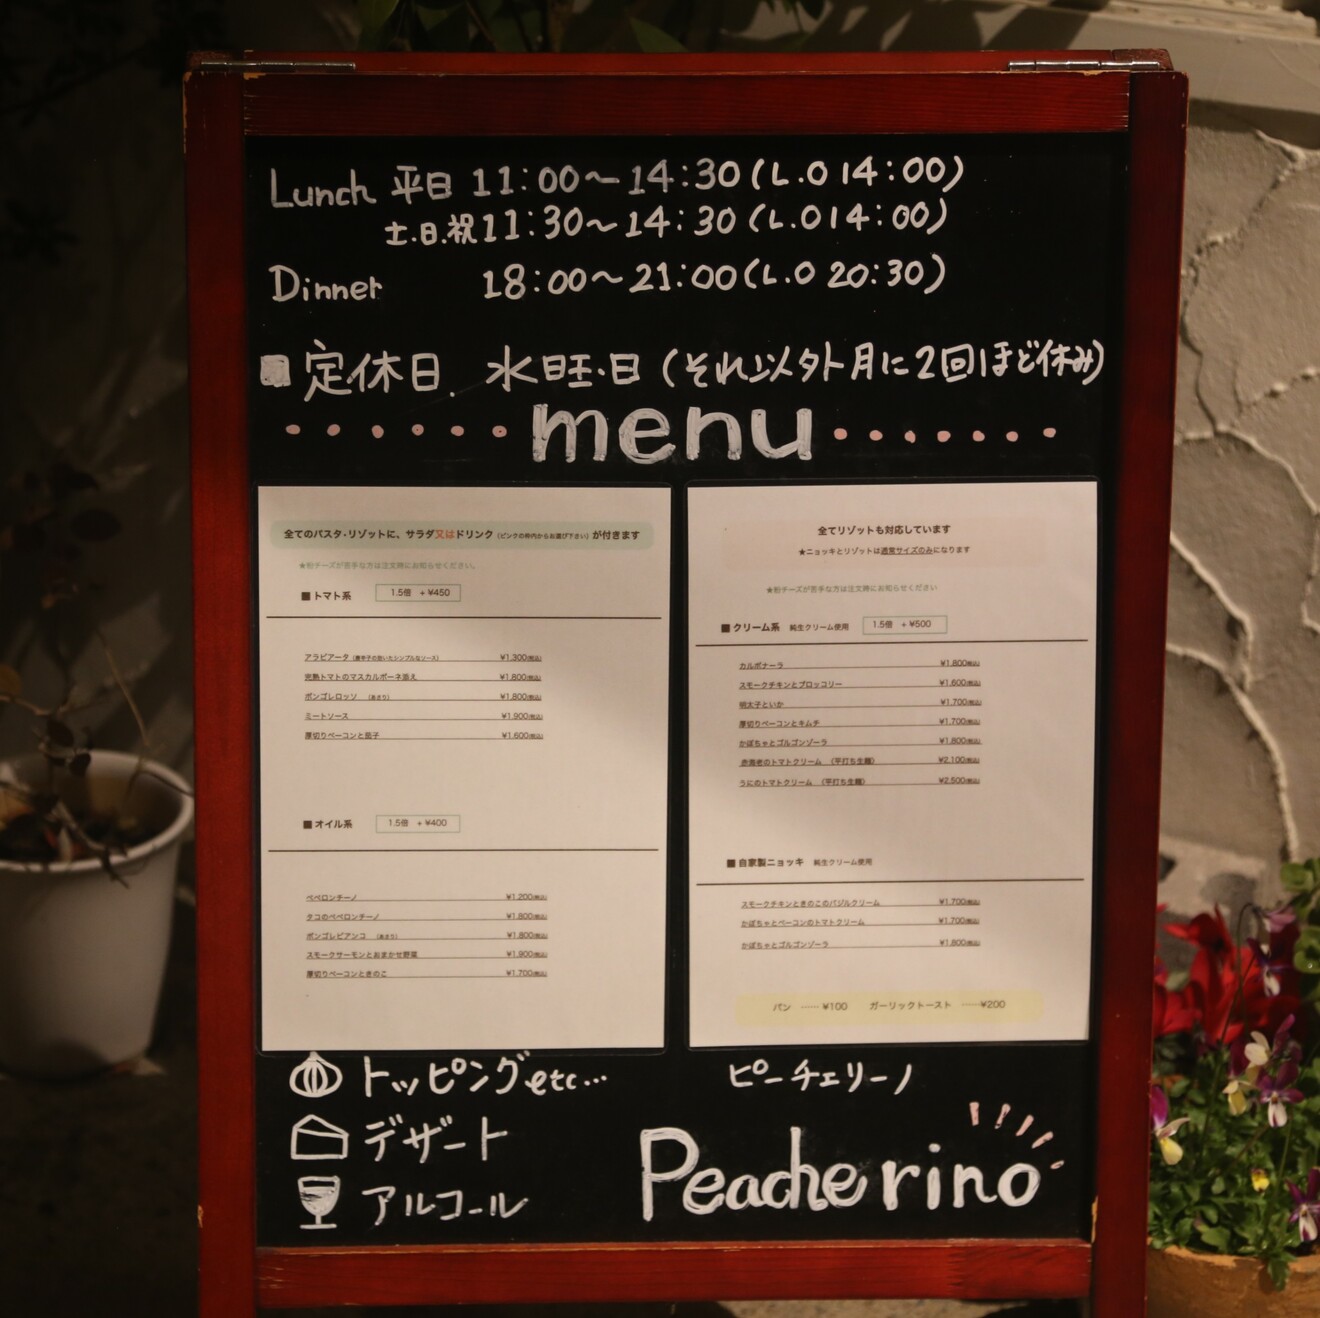 Lunch 平日 11:00〜14:30(L.O 14:00)
土.日.祝11:30〜14:30(L.O14:00)
Dinner 18:00〜21:00(L.O 20:30)
■定休日. 水曜・日(それ以外月に2回ほど休み)
menu
全てのパスタ・リゾットに、サラダ又はドリンク(ピンクの枠内からお選び下さい)が付きます
★粉チーズが苦手な方は注文時にお知らせください。
■トマト系 1.5倍 +¥450
アラビアータ(唐辛子の効いたシンプルなソース) ¥1,300(税込)
完熟トマトのマスカルポーネ添え ¥1,800(税込)
ボンゴレロッソ (あさり) ¥1,800(税込)
ミートソース ¥1,900(税込)
厚切りベーコンと茄子 ¥1,600(税込)
■オイル系 1.5倍 +¥400
ペペロンチーノ ¥1,200(税込)
タコのペペロンチーノ ¥1,800(税込)
ボンゴレビアンコ (あさり) ¥1,800(税込)
スモークサーモンとおまかせ野菜 ¥1,900(税込)
厚切りベーコンときのこ ¥1,700(税込)
全てリゾットも対応しています
★ニョッキとリゾットは通常サイズのみになります
★粉チーズが苦手な方は注文時にお知らせください
■クリーム系 純生クリーム使用 1.5倍 +¥500
カルボナーラ ¥1,800(税込)
スモークチキンとブロッコリー ¥1,600(税込)
明太子といか ¥1,700(税込)
厚切りベーコンとキムチ ¥1,700(税込)
かぼちゃとゴルゴンゾーラ ¥1,800(税込)
赤海老のトマトクリーム (平打ち生麺) ¥2,100(税込)
うにのトマトクリーム (平打ち生麺) ¥2,500(税込)
■自家製ニョッキ 純生クリーム使用
スモークチキンときのこのバジルクリーム ¥1,700(税込)
かぼちゃとベーコンのトマトクリーム ¥1,700(税込)
かぼちゃとゴルゴンゾーラ ¥1,800(税込)
パン ……¥100 ガーリックトースト ……¥200
トッピングetc…
デザート
アルコール
ピーチェリーノ
Peacherino